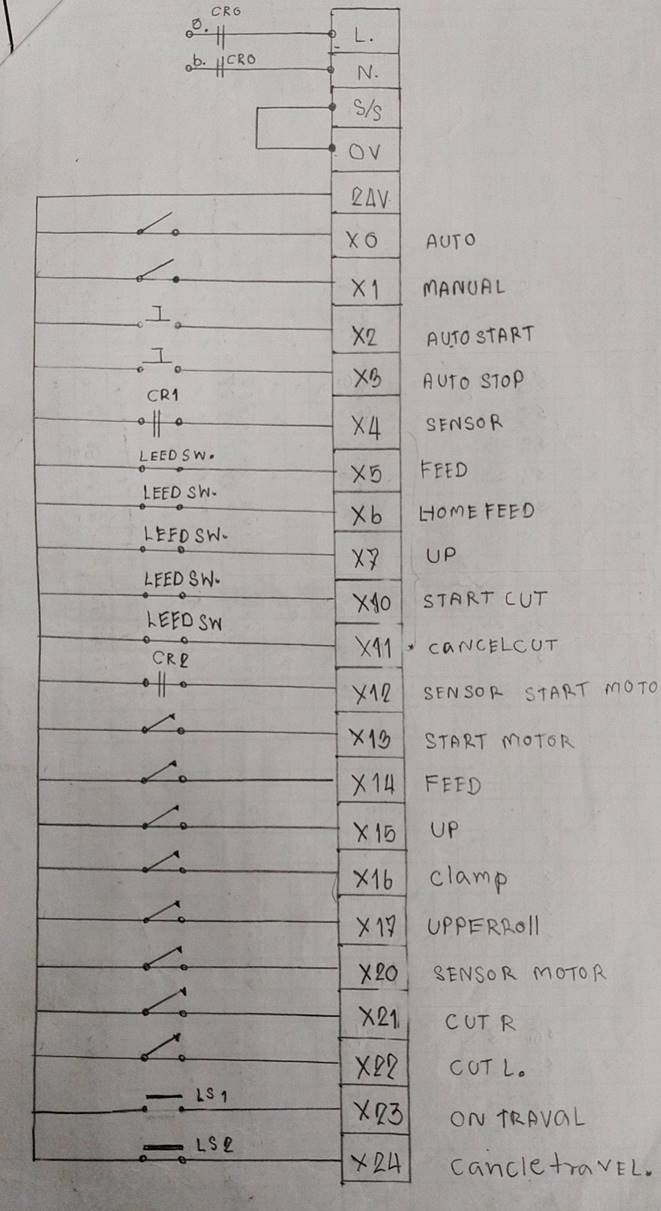 CR0
a. L.
b. CR0 N.
S/S
0V
24V
X0 AUTO
X1 MANUAL
X2 AUTO START
X3 AUTO STOP
CR1
X4 SENSOR
LEED SW.
X5 FEED
LEED SW.
X6 HOME FEED
LEED SW.
X7 UP
LEED SW.
X10 START CUT
LEED SW
X11 CANCELCUT
CR2
X12 SENSOR START MOTO
X13 START MOTOR
X14 FEED
X15 UP
X16 clamp
X17 UPPERROll
X20 SENSOR MOTOR
X21 CUT R
X22 CUT L.
LS1
X23 ON TRAVAL
LS2
X24 CancletraVEL.